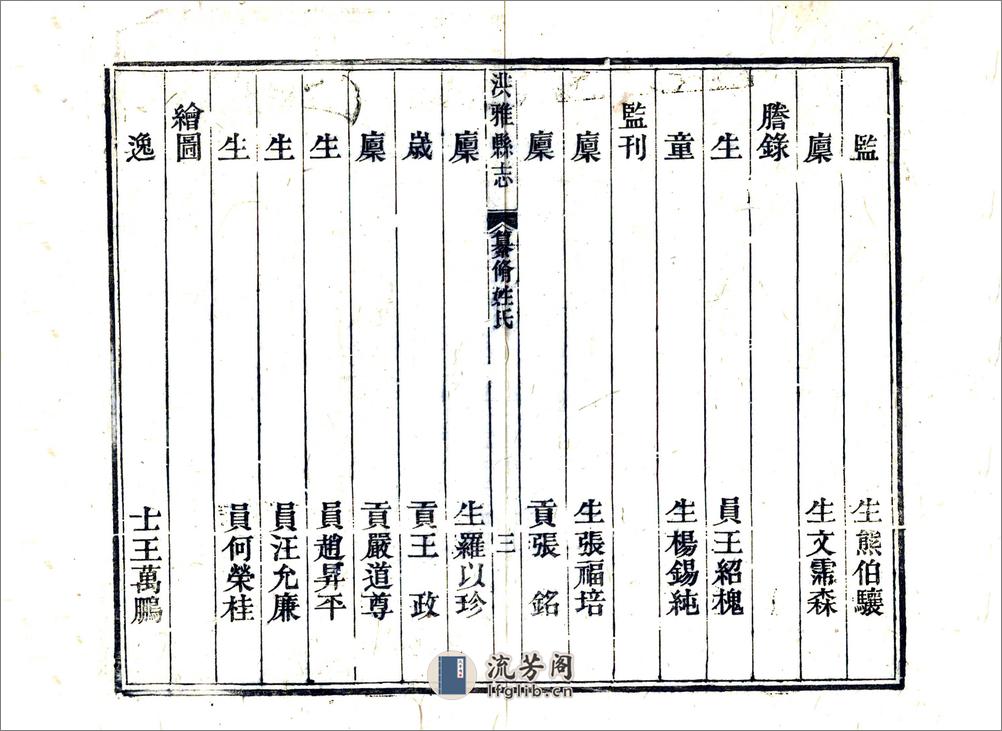 監生熊伯驤
廩生文霈森
謄錄
生員王紹槐
童生楊錫純
監刊
廩生張福培
廩貢張銘
洪雅縣志 纂脩姓氏 三
廩生羅以珍
歲貢王政
廩貢嚴道尊
生員趙昇平
生員汪允廉
生員何榮桂
繪圖
逸士王萬鵬
流芳阁
lfglib.cn